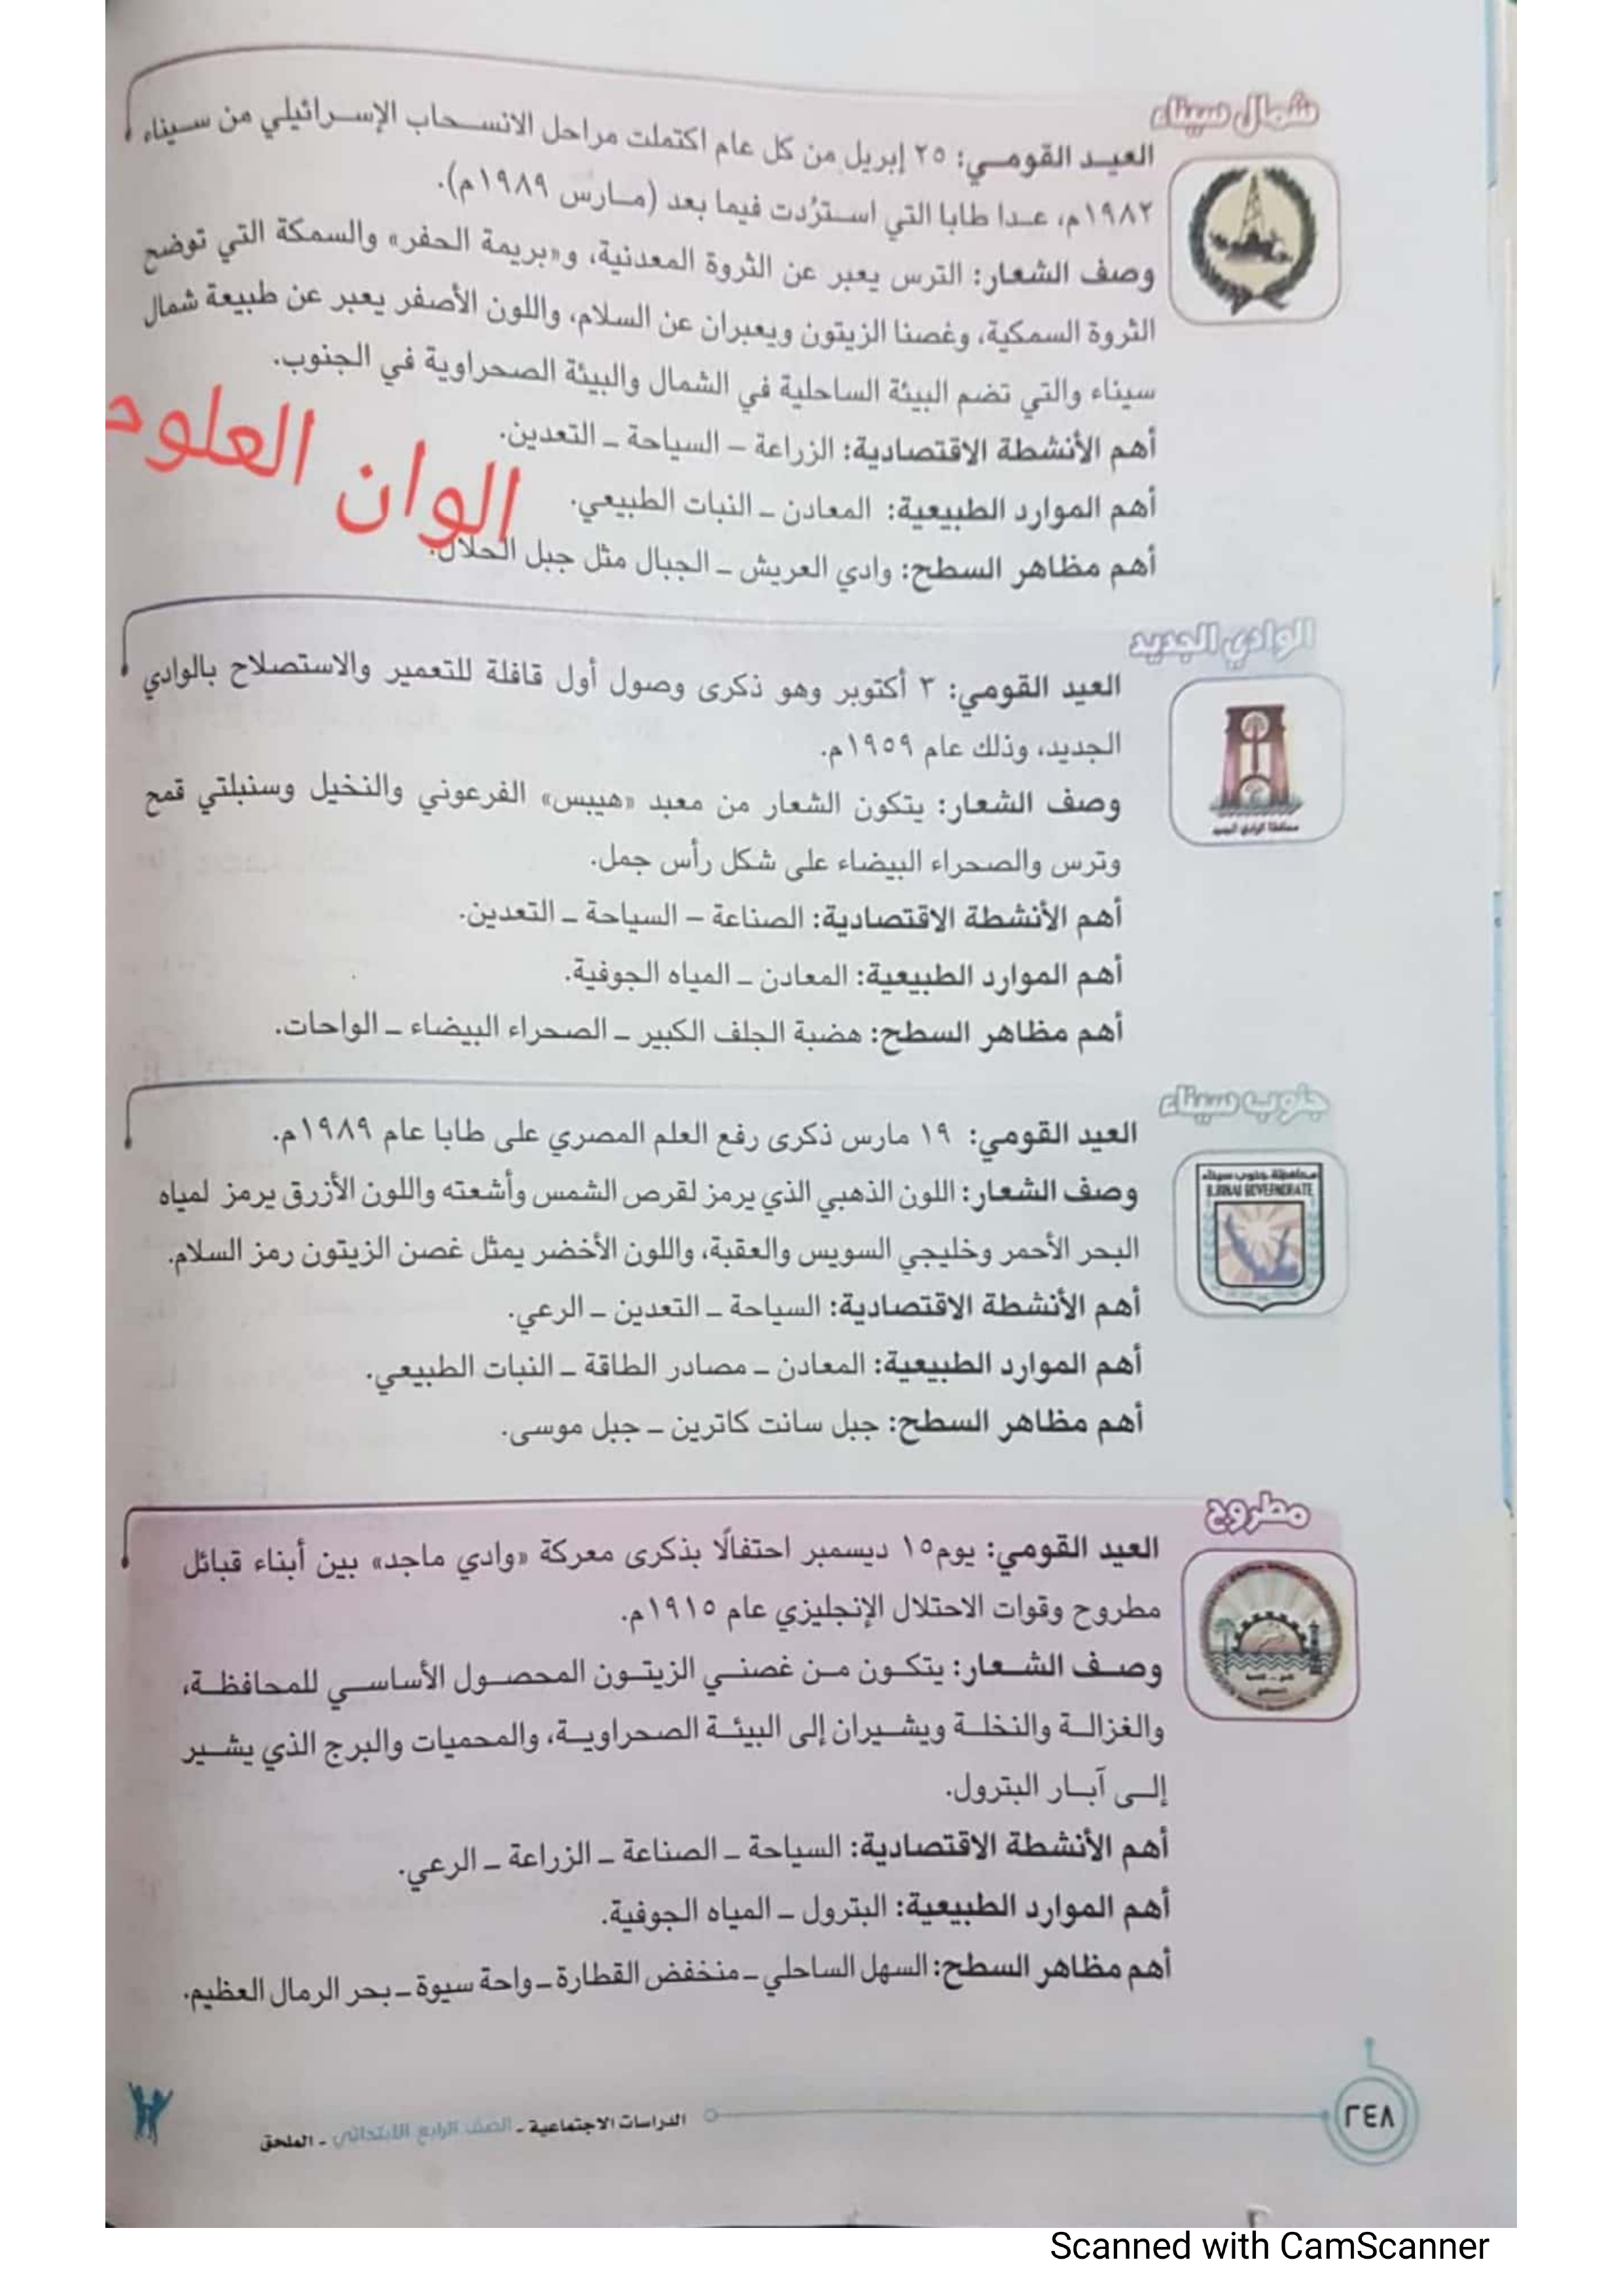 شمال سيناء
العيد القومي: ٢٥ إبريل من كل عام اكتملت مراحل الانسحاب الإسرائيلي من سيناء
١٩٨٢م، عدا طابا التي استرُدت فيما بعد (مارس ١٩٨٩م).
وصف الشعار: الترس يعبر عن الثروة المعدنية، و«بريمة الحفر» والسمكة التي توضح
الثروة السمكية، وغصنا الزيتون ويعبران عن السلام، واللون الأصفر يعبر عن طبيعة شمال
سيناء والتي تضم البيئة الساحلية في الشمال والبيئة الصحراوية في الجنوب.
أهم الأنشطة الاقتصادية: الزراعة – السياحة – التعدين.
الوان العلوم
أهم الموارد الطبيعية: المعادن – النبات الطبيعي.
أهم مظاهر السطح: وادي العريش – الجبال مثل جبل الحلال.
الوادي الجديد
العيد القومي: ٣ أكتوبر وهو ذكرى وصول أول قافلة للتعمير والاستصلاح بالوادي
الجديد، وذلك عام ١٩٥٩م.
وصف الشعار: يتكون الشعار من معبد «هيبس» الفرعوني والنخيل وسنبلتي قمح
وترس والصحراء البيضاء على شكل رأس جمل.
محافظة الوادي الجديد
أهم الأنشطة الاقتصادية: الصناعة – السياحة – التعدين.
أهم الموارد الطبيعية: المعادن – المياه الجوفية.
أهم مظاهر السطح: هضبة الجلف الكبير – الصحراء البيضاء – الواحات.
جنوب سيناء
العيد القومي: ١٩ مارس ذكرى رفع العلم المصري على طابا عام ١٩٨٩م.
محافظة جنوب سيناء
S.SINAI GOVERNORATE
وصف الشعار: اللون الذهبي الذي يرمز لقرص الشمس وأشعته واللون الأزرق يرمز لمياه
البحر الأحمر وخليجي السويس والعقبة، واللون الأخضر يمثل غصن الزيتون رمز السلام.
أهم الأنشطة الاقتصادية: السياحة – التعدين – الرعي.
أهم الموارد الطبيعية: المعادن – مصادر الطاقة – النبات الطبيعي.
أهم مظاهر السطح: جبل سانت كاترين – جبل موسى.
مطروح
العيد القومي: يوم١٥ ديسمبر احتفالًا بذكرى معركة «وادي ماجد» بين أبناء قبائل
مطروح وقوات الاحتلال الإنجليزي عام ١٩١٥م.
وصف الشعار: يتكون من غصني الزيتون المحصول الأساسي للمحافظة،
والغزالة والنخلة ويشيران إلى البيئة الصحراوية، والمحميات والبرج الذي يشير
إلى آبار البترول.
أهم الأنشطة الاقتصادية: السياحة – الصناعة – الزراعة – الرعي.
أهم الموارد الطبيعية: البترول – المياه الجوفية.
أهم مظاهر السطح: السهل الساحلي – منخفض القطارة – واحة سيوة – بحر الرمال العظيم.
٢٤٨
الدراسات الاجتماعية - الصف الرابع الابتدائي - الملحق
Scanned with CamScanner